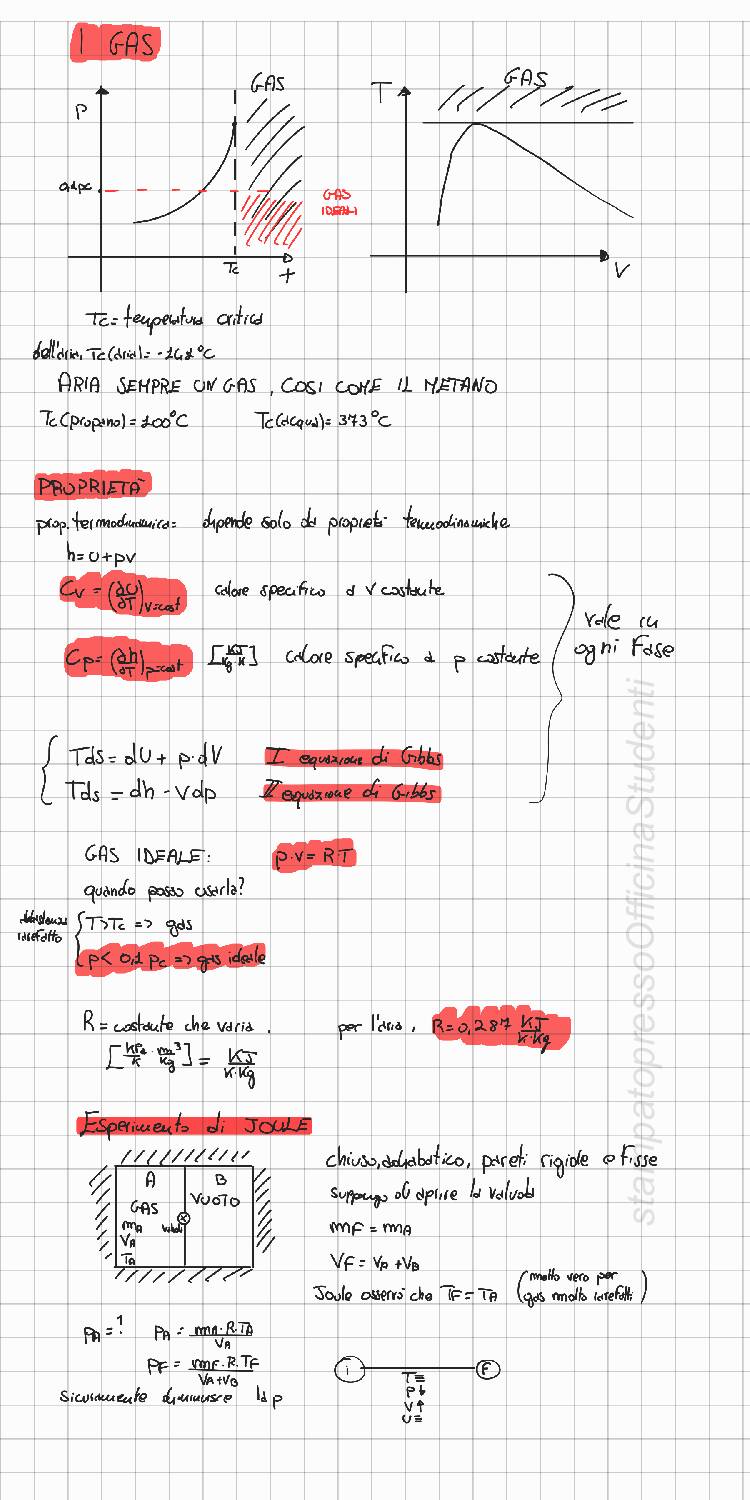 I GAS
P
GAS
0,1pc
GAS
IDEALI
Tc
T
GAS
V
Tc = temperatura critica
dell'aria, Tc(aria) = -141°C
ARIA SEMPRE UN GAS, COSI COME IL METANO
Tc(propano) = 100°C Tc(acqua) = 373°C
PROPRIETÀ
prop. termodinamica = dipende solo da proprietà termodinamiche
h = u + pv
Cv = (∂U/∂T)v=cost calore specifico a v costante
Cp = (∂h/∂T)p=cost [KJ/kg·K] calore specifico a p costante
vale in
ogni fase
Tds = dU + p·dV I equazione di Gibbs
Tds = dh - Vdp II equazione di Gibbs
GAS IDEALE: p·v = R·T
quando posso usarla?
abbastanza
rarefatto
T>Tc => gas
p< 0,1 pc => gas ideale
R = costante che varia, per l'aria, R = 0,287 KJ/K·Kg
[KPa/K · m³/Kg] = KJ/K·Kg
Esperimento di JOULE
A B
GAS VUOTO
mA valvola
VA
TA
chiuso, adiabatico, pareti rigide e fisse
suppongo di aprire la valvola
mF = mA
VF = VA + VB
Joule osservò che TF = TA (molto vero per
gas molto rarefatti)
PA = ? PA = mA·R·TA/VA
PF = mF·R·TF/VA+VB
Sicuramente diminuisce la p
i F
T=
P↓
V↑
U=
stampatopressoOfficinaStudenti